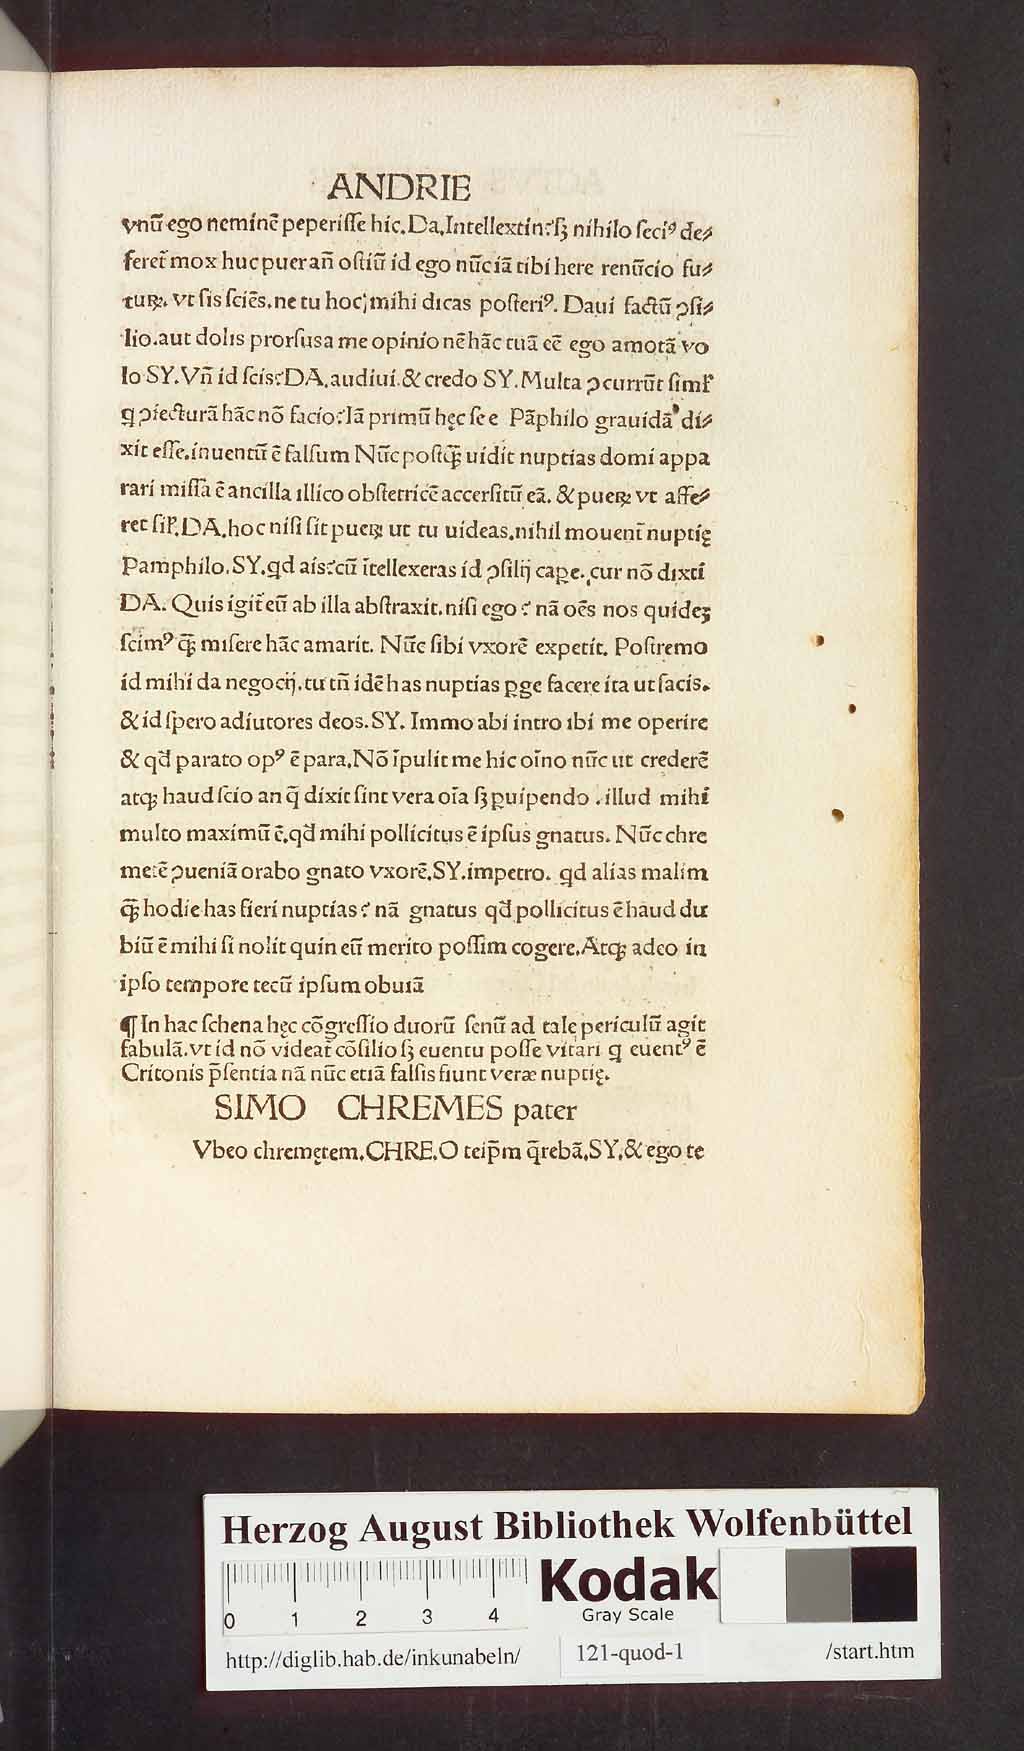 ANDRIE
vnū ego neminē peperiſſe hic. Da. Intellextin:ſꝫ nihilo ſeciꝰ de⸗
feret̄ mox huc puerañ oſtiū id ego nūciā tibi here renūcio fu⸗
tuꝝ. vt ſis ſciēs. ne tu hoc mihi dicas poſteriꝰ. Daui factū ꝯſi⸗
lio. aut dolis prorſusa me opinionē hāc tuā eē ego amotā vo
lo SY. Vñ id ſcis: DA. audiui. & credo SY. Multa ꝯcurrūt ſimł
q ꝯiecturā hāc nō facio: Iā primū hęc ſe e Pāphilo grauidā di⸗
xit eſſe. inuentū ē falſum Nūc poſtꝙ̄ uidit nuptias domi appa
rari miſſa ē ancilla illico obſtetricē accerſitū eā. & pueꝝ vt affe⸗
ret ſił. DA. hoc niſi ſit pueꝝ ut tu uideas. nihil mouent̄ nuptię
Pamphilo. SY. qd ais: cū ītellexeras id ꝯſilij cape. cur nō dixti
DA. Quis igit̄ eū ab illa abſtraxit. niſi ego : nā oēs nos quideꝫ
ſcimꝰ ꝙ̄ miſere hāc amarit. Nūc ſibi vxorē expetit. Poſtremo
id mihi da negocij. tu tñ idē has nuptias ꝑge facere ita ut facis.
& id ſpero adiutores deos. SY. Immo abi intro ibi me operire
& qd̄ parato opꝰ ē para. Nō īpulit me hic oīno nūc ut crederē
atqꝫ haud ſcio an q̄ dixit ſint vera oīa ſꝫ ꝑuipendo . illud mihi
multo maximū ē. qd̄ mihi pollicitus ē ipſus gnatus. Nūc chre
metē ꝯueniā orabo gnato vxorē. SY. impetro. qd alias malim
ꝙ̄ hodie has fieri nuptias : nā gnatus qd̄ pollicitus ē haud du
biū ē mihi ſi nolit quin eū merito poſſim cogere. Atqꝫ adeo in
ipſo tempore tecū ipſum obuiā
¶ In hac ſchena hęc cōgreſſio duorū ſenū ad tale periculū agit
fabulā. vt id nō videat̄ cōſilio ſꝫ euentu poſſe vitari q euentꝰ ē
Critonis p̄ſentia nā nūc etiā falſis fiunt veræ nuptię.
SIMO CHREMES pater
Vbeo chremętem. CHRE. O teip̄m q̄rebā. SY. & ego te
Herzog August Bibliothek Wolfenbüttel
0 1 2 3 4
Kodak
Gray Scale
http://diglib.hab.de/inkunabeln/ 121-quod-1 /start.htm